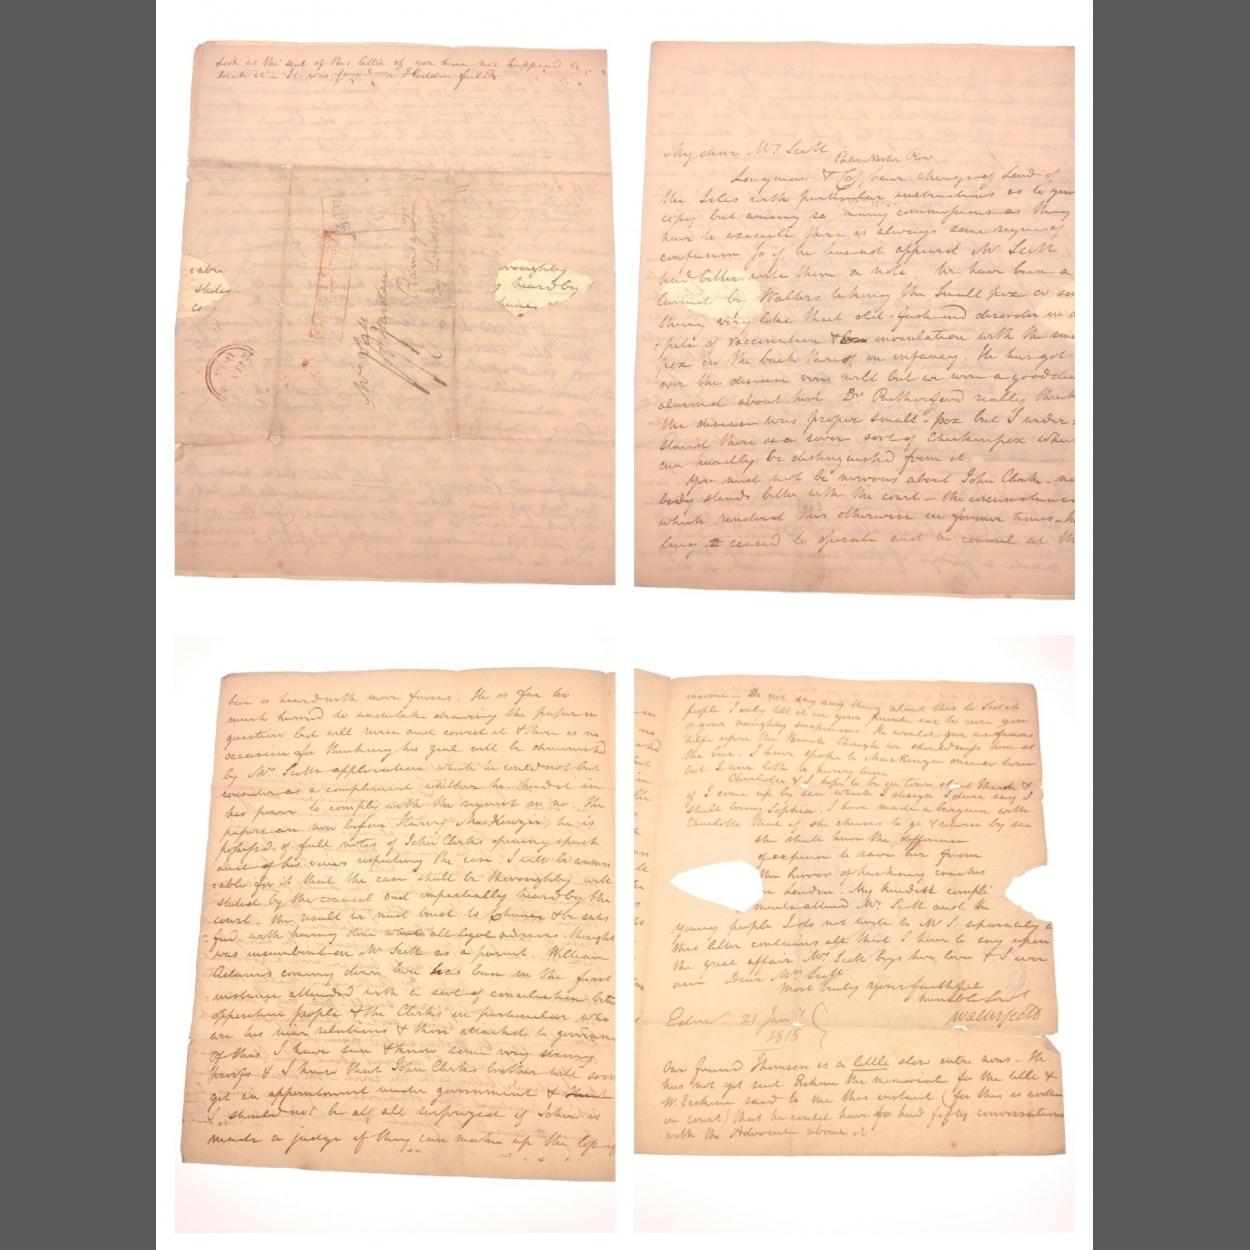 Look at the seal of this letter if you have not happened to
break it - It was found on Flodden field
Mrs Scott
Ramsgate
by London
My dear Mrs Scott
Pater Noster Row
Longman & Co, near charge of Lord of
the Isles with particular instructions as to your
copy but among so many commissions as they
have to execute there is always some degree of
confusion so if he has not appeared Mr Scott
had better write them a note. We have been a
larmed by Walters taking the Small pox or some
thing very like that old-fashiond disorder in s
:pite of vaccination & inoculation with the small
pox on the back thereof in infancy. He has got
over the disease very well but we were a good deal
alarmed about him Dr Rutherford really thinks
the disease was proper small-pox but I under:
stand there is a severe sort of Chickenpox which
can hardly be distinguished from it
You need not be nervous about John Clerk - no
body stands better with the court - the circumstances
which rendered this otherwise in former times ha
ving ceased to operate and no counsel at the
bar is heard with more favour. He is far too
much hurried to undertake drawing the paper in
question but will revise and correct it & there is no
occasion for thinking his zeal will be diminished
by Mr Scotts application which he could not but
consider as a compliment whether he had it in
his power to comply with the request or no. The
papers are now before Harry MacKenzie, he is
possessd of full notes of John Clerks opening speech
and of his views respecting the case. I will be answer
:able for it that the case shall be thoroughly well
stated by the counsel and impartially heard by the
court - the result we must trust to & be satis
:fied with having done what all legal advisers thought
was incumbent on Mr Scott as a parent. William
Adams coming down here has been in the first
:instance attended with a sort of conciliation betw
opposition people & the Clerks in particular who
are his near relations & those attached to governme
of this I have seen & know some very strong
proofs & I know that John Clerks brother will soon
get an appointment under government &
I should not be at all surprized if John is
made a judge if they can make up the loss of
income - Do not say any thing about this to Scotch
people I only tell it in your private ear to cure you
of your naughty suspicions. He would give us
help upon the Bench though we should miss him at
the bar. I have spoke to MacKenzie once or twice
but I am loth to hurry him
Charlotte & I hope to be in town &
if I come up by sea which I design I dare say I
shall bring Sophia. I have made a bargain with
Charlotte that if she chuses to go & return by sea
she shall have the difference
of expence to save her from
the horror of hackney coaches
in London. My kindest compli
ments attend Mr. Scott and the
young people I do not write to Mr S. separately as
this letter contains all that I have to say upon
the great affair Mrs Scott begs her love & I ever
am Dear Mrs Scott
Most truly your faithful
humble Servt
Walter Scott
Edinr. 21 Jany
1815
Our friend Thomson is a little slow entre nous. He
has not yet sent Erskine the memorial for the title &
W. Erskine said to me this instant (for this is written
in court) that he could have had fifty conversations
with the Advocate about it